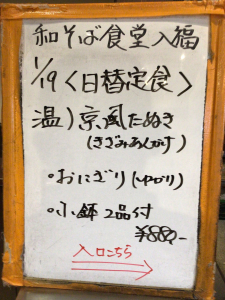 和そば食堂入福
1/19〈日替定食〉
温)京風たぬき
(きざみあんかけ)
・おにぎり(ゆかり)
・小鉢2品付
¥880-
入口こちら